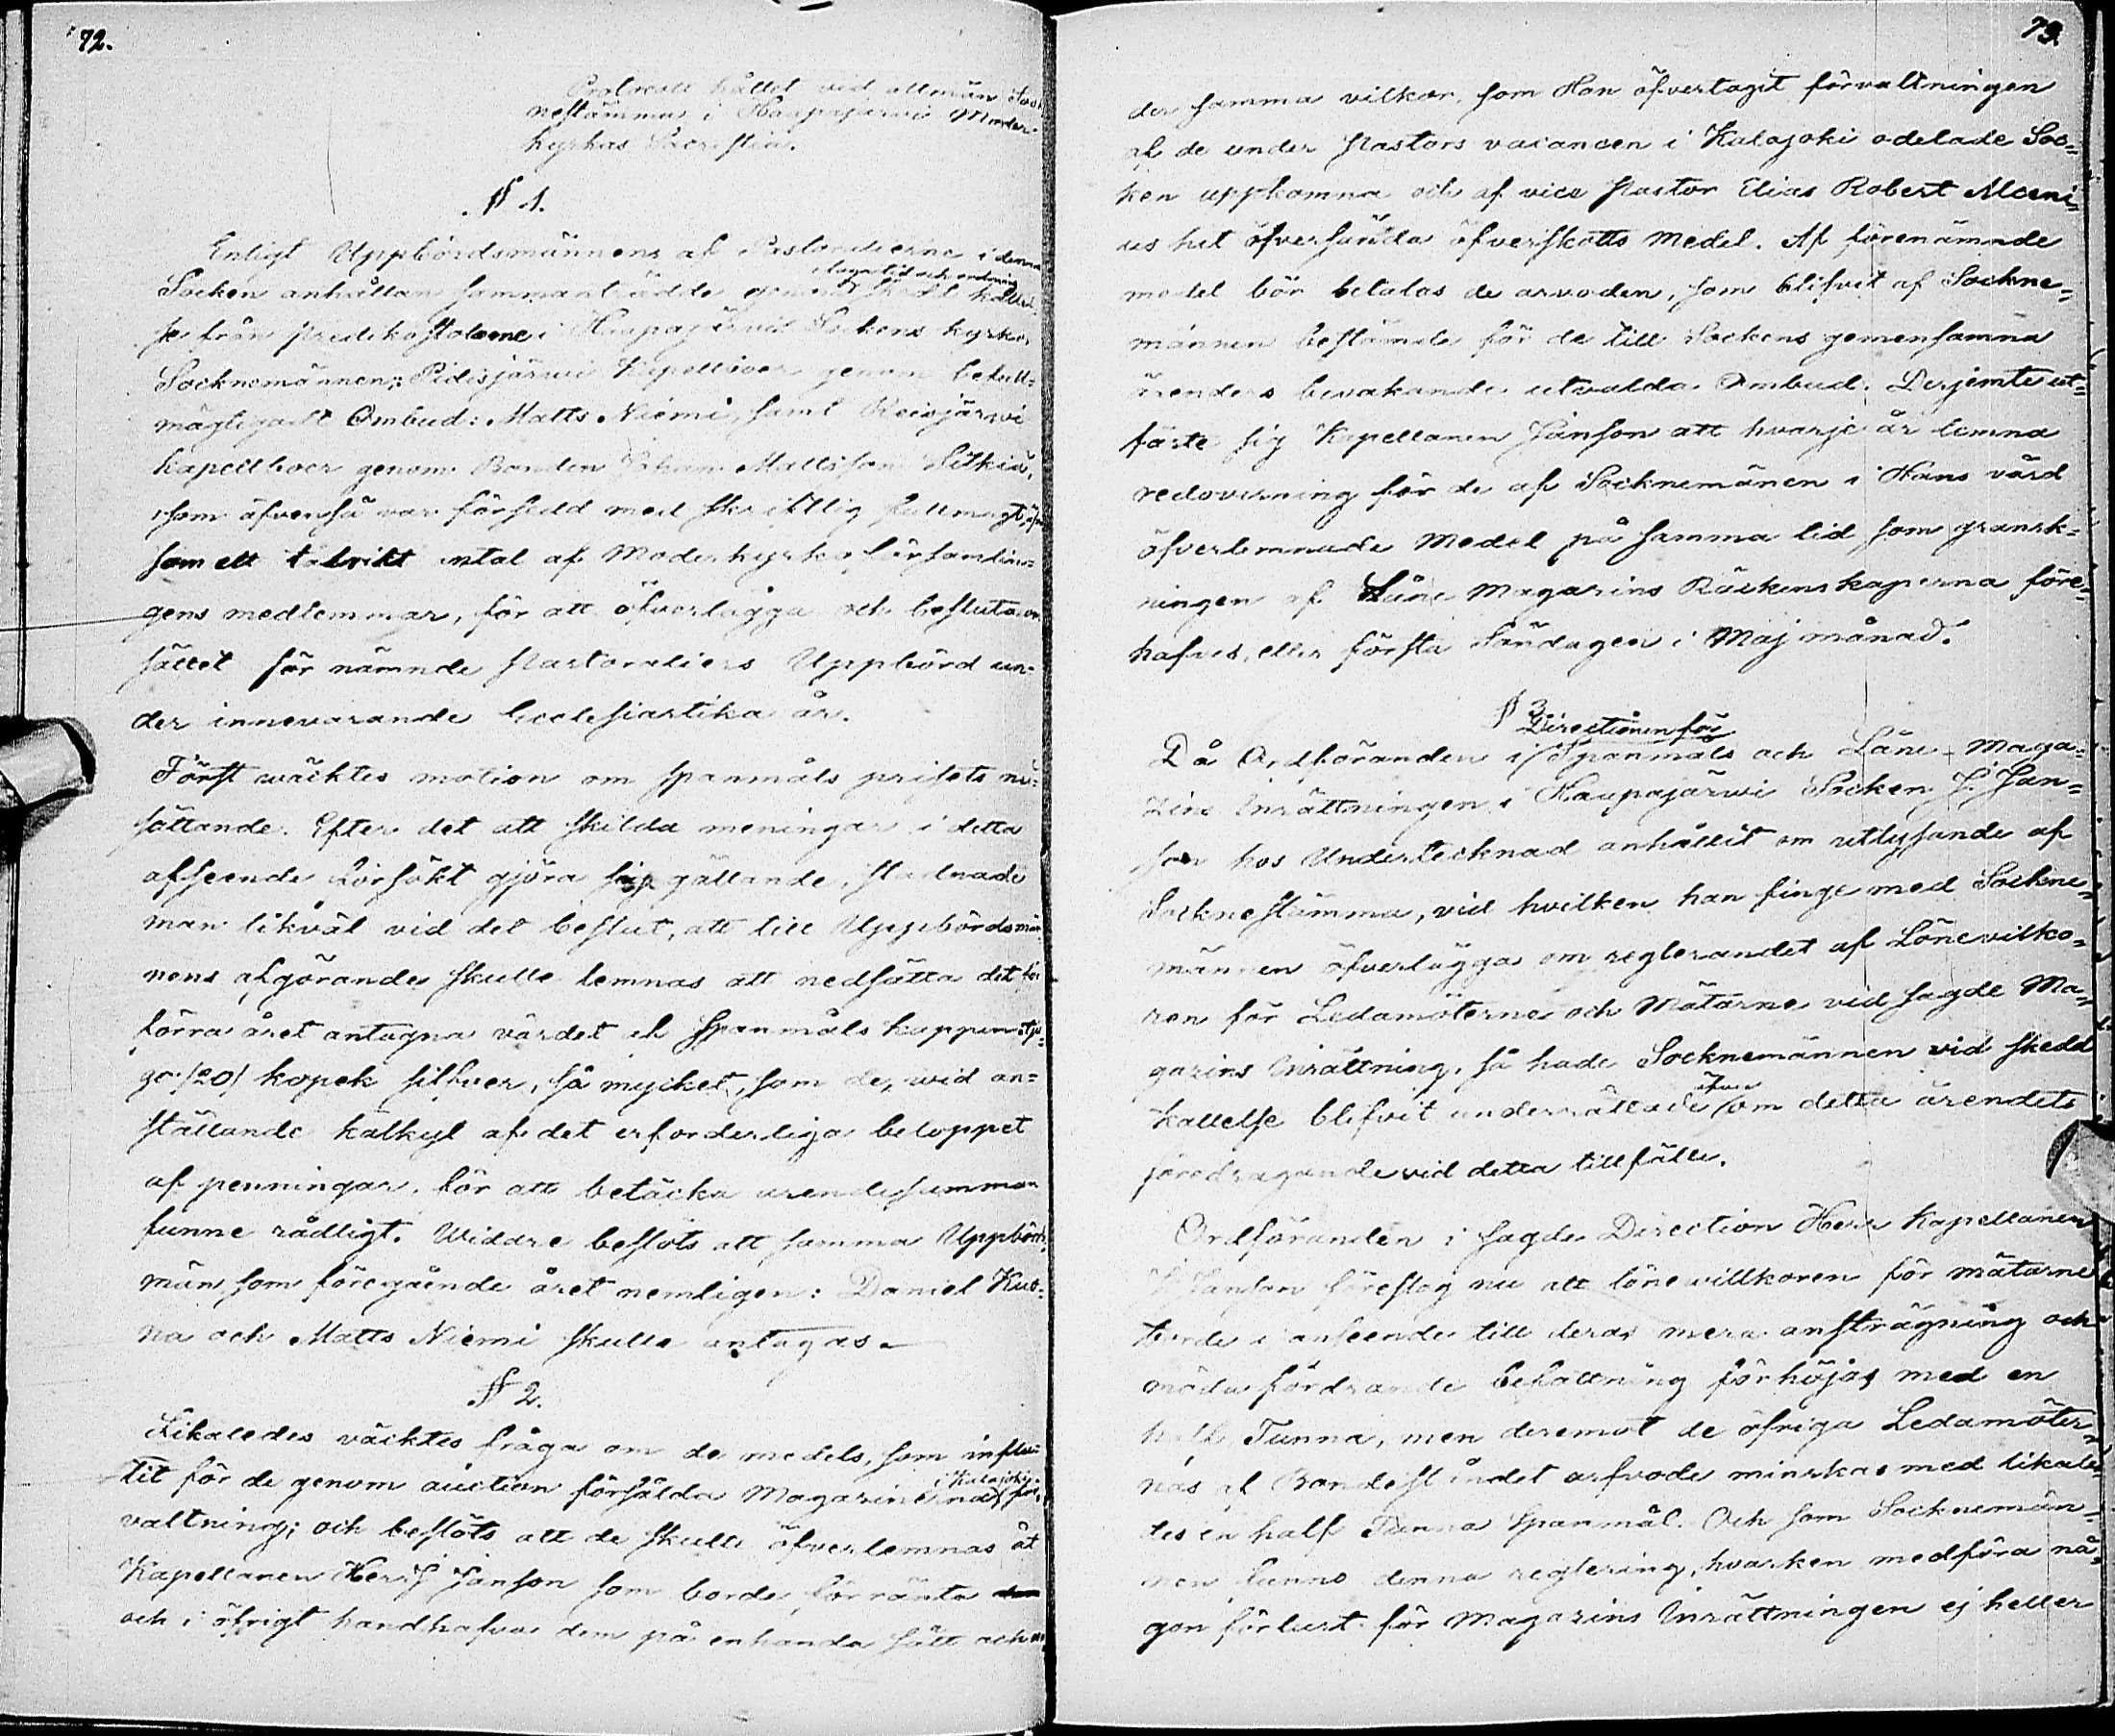 72.
Protocoll hållet vid allmän Sock
nestämma i Haapajärwi Moder-
kyrkas Sacristia.
§ 1.
Enligt Uppbördsmännens af Pastoralierne i denna
i laga tid och ordning
Socken anhållan sammanträdde genom skedd kallel-
se från predikostolarne i Haapajärvi Sockens kyrkor,
Socknemännen; Pidisjärwi Kapellboer genom befull-
mägtigadt Ombud: Matts Niemi, samt Reisjärvi
Kapellboer genom Bonden Johan Mattsson Silkiä,
som äfvenså var försedd med skriftlig fullmagt,
som ett talrikt antal af Moderkyrko församlin-
gens medlemmar, för att öfverlägga och besluta om
sättet för nämnde Pastoraliers Uppbörd un-
der innevarande Ecclesiastika år.
Först wäcktes motion om spanmåls prisets ned-
sättande. Efter det att skilda meningar i detta
afseende försökt gjöra sig gällande, stadnade
man likväl vid det beslut, att till Uppbördsmän-
nens afgörande skulle lemnas att nedsätta det för
förra året antagna värdet af Spanmåls kappen tju-
go /20/ kopek silfver, så mycket, som de, wid an-
ställande kalkyl af det erforderliga beloppet
af penningar, för att betäcka arendesumman
funne rådligt. Widare beslöts att samma Uppbörds-
män som föregående året nemligen: Daniel Kuo-
na och Matts Niemi skulle antagas.
§ 2.
Likaledes väcktes fråga om de medels, som influ-
i Kalajoki
tit för de genom auction försålda Magazinerna för-
valtning; och beslöts att de skulle öfverlemnas åt
Kapellanen Herr J Janson som borde förränta
och i öfrigt handhafva dem på enhanda sätt och un-
73.
der samma vilkor, som Han öfvertagit förvaltningen
af de under Pastors vacancen i Kalajoki odelade Soc-
ken uppkomna och af vice Pastor Elias Robert Alceni-
us hit öfversända öfverskotts Medel. Af förenämnde
medel bör betalas de arvoden, som blifvit af Sockne-
männen bestämde för de till Sockens gemensamma
ärenders bevakande utvalda Ombud. Derjemte ut-
fäste sig Kapellanen Janson att hvarje år lemna
redovisning för de af Socknemänen i Hans vård
öfverlemnade Medel på samma tid, som gransk-
ningen af Låne Magazins Räckenskaperna före-
hafves, eller första Söndagen i Maj månad.
§ 3.
Directionen för
Då Ordföranden i Spanmåls och Låne-Maga-
zins Inrättningen i Haapajärwi Socken J. Jan-
son hos Undertecknad anhållit om utlysande af
Socknestämma, vid hvilken han finge med Sockne-
männen öfverlägga om reglerandet af Lönevilko-
ren för Ledamöterne och Mätarne vid sagde Ma-
gazins Inrättning, så hade Socknemännen vid skedd
äfven
Kallelse blifvit underrättade om detta ärendets
föredragande vid detta tillfälle.
Ordföranden i sagde Direction Herr Kapellanen
J Janson föreslog nu att lönevillkoren för mätarne
borde i anseende till deras mera ansträgning och
möda fordrande befattning förhöjas med en
half Tunna, men deremot de öfriga Ledamöter-
nas af Bondeståndet arfvode minskas med likale-
des en half Tunna Spanmål. Och som Socknemän-
nen funno denna reglering, hvarken medföra nå-
gon förlust för Magazins Inrättningen ej heller